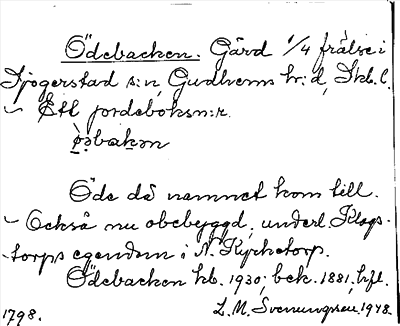 Ödebacken. Gård 1/4 frälse i
Sjogerstad s:n, Gudhems hr:d, Skb. l.
~ Ett jordeboksn:r.
ø̀əbakən
Öde då namnet kom till.
~ Också nu obebyggd, underl. Klags-
torps egendom i N. Kyrketorp.
Ödebacken kb. 1930; bek. 1881, hfl.
1798. L. M. Svenungsson 1948.